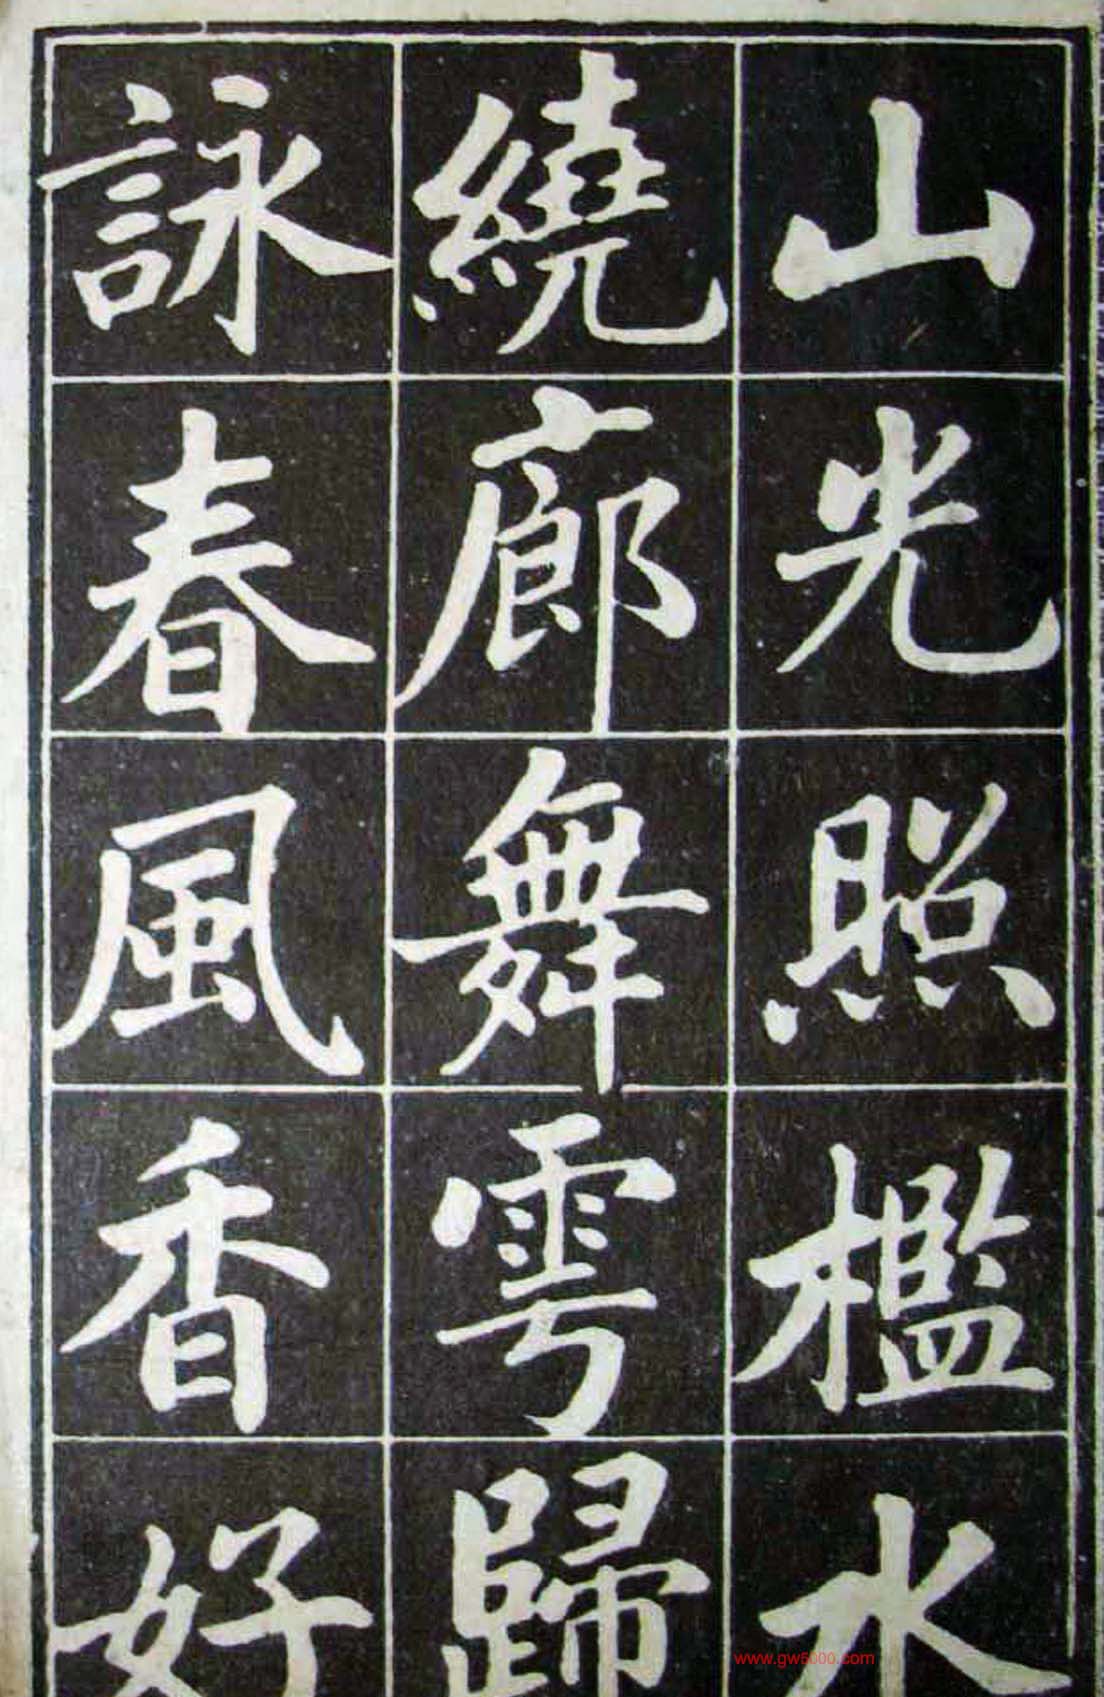 山光照檻水
繞廊舞雩歸
詠春風香好
www.gw5000.com